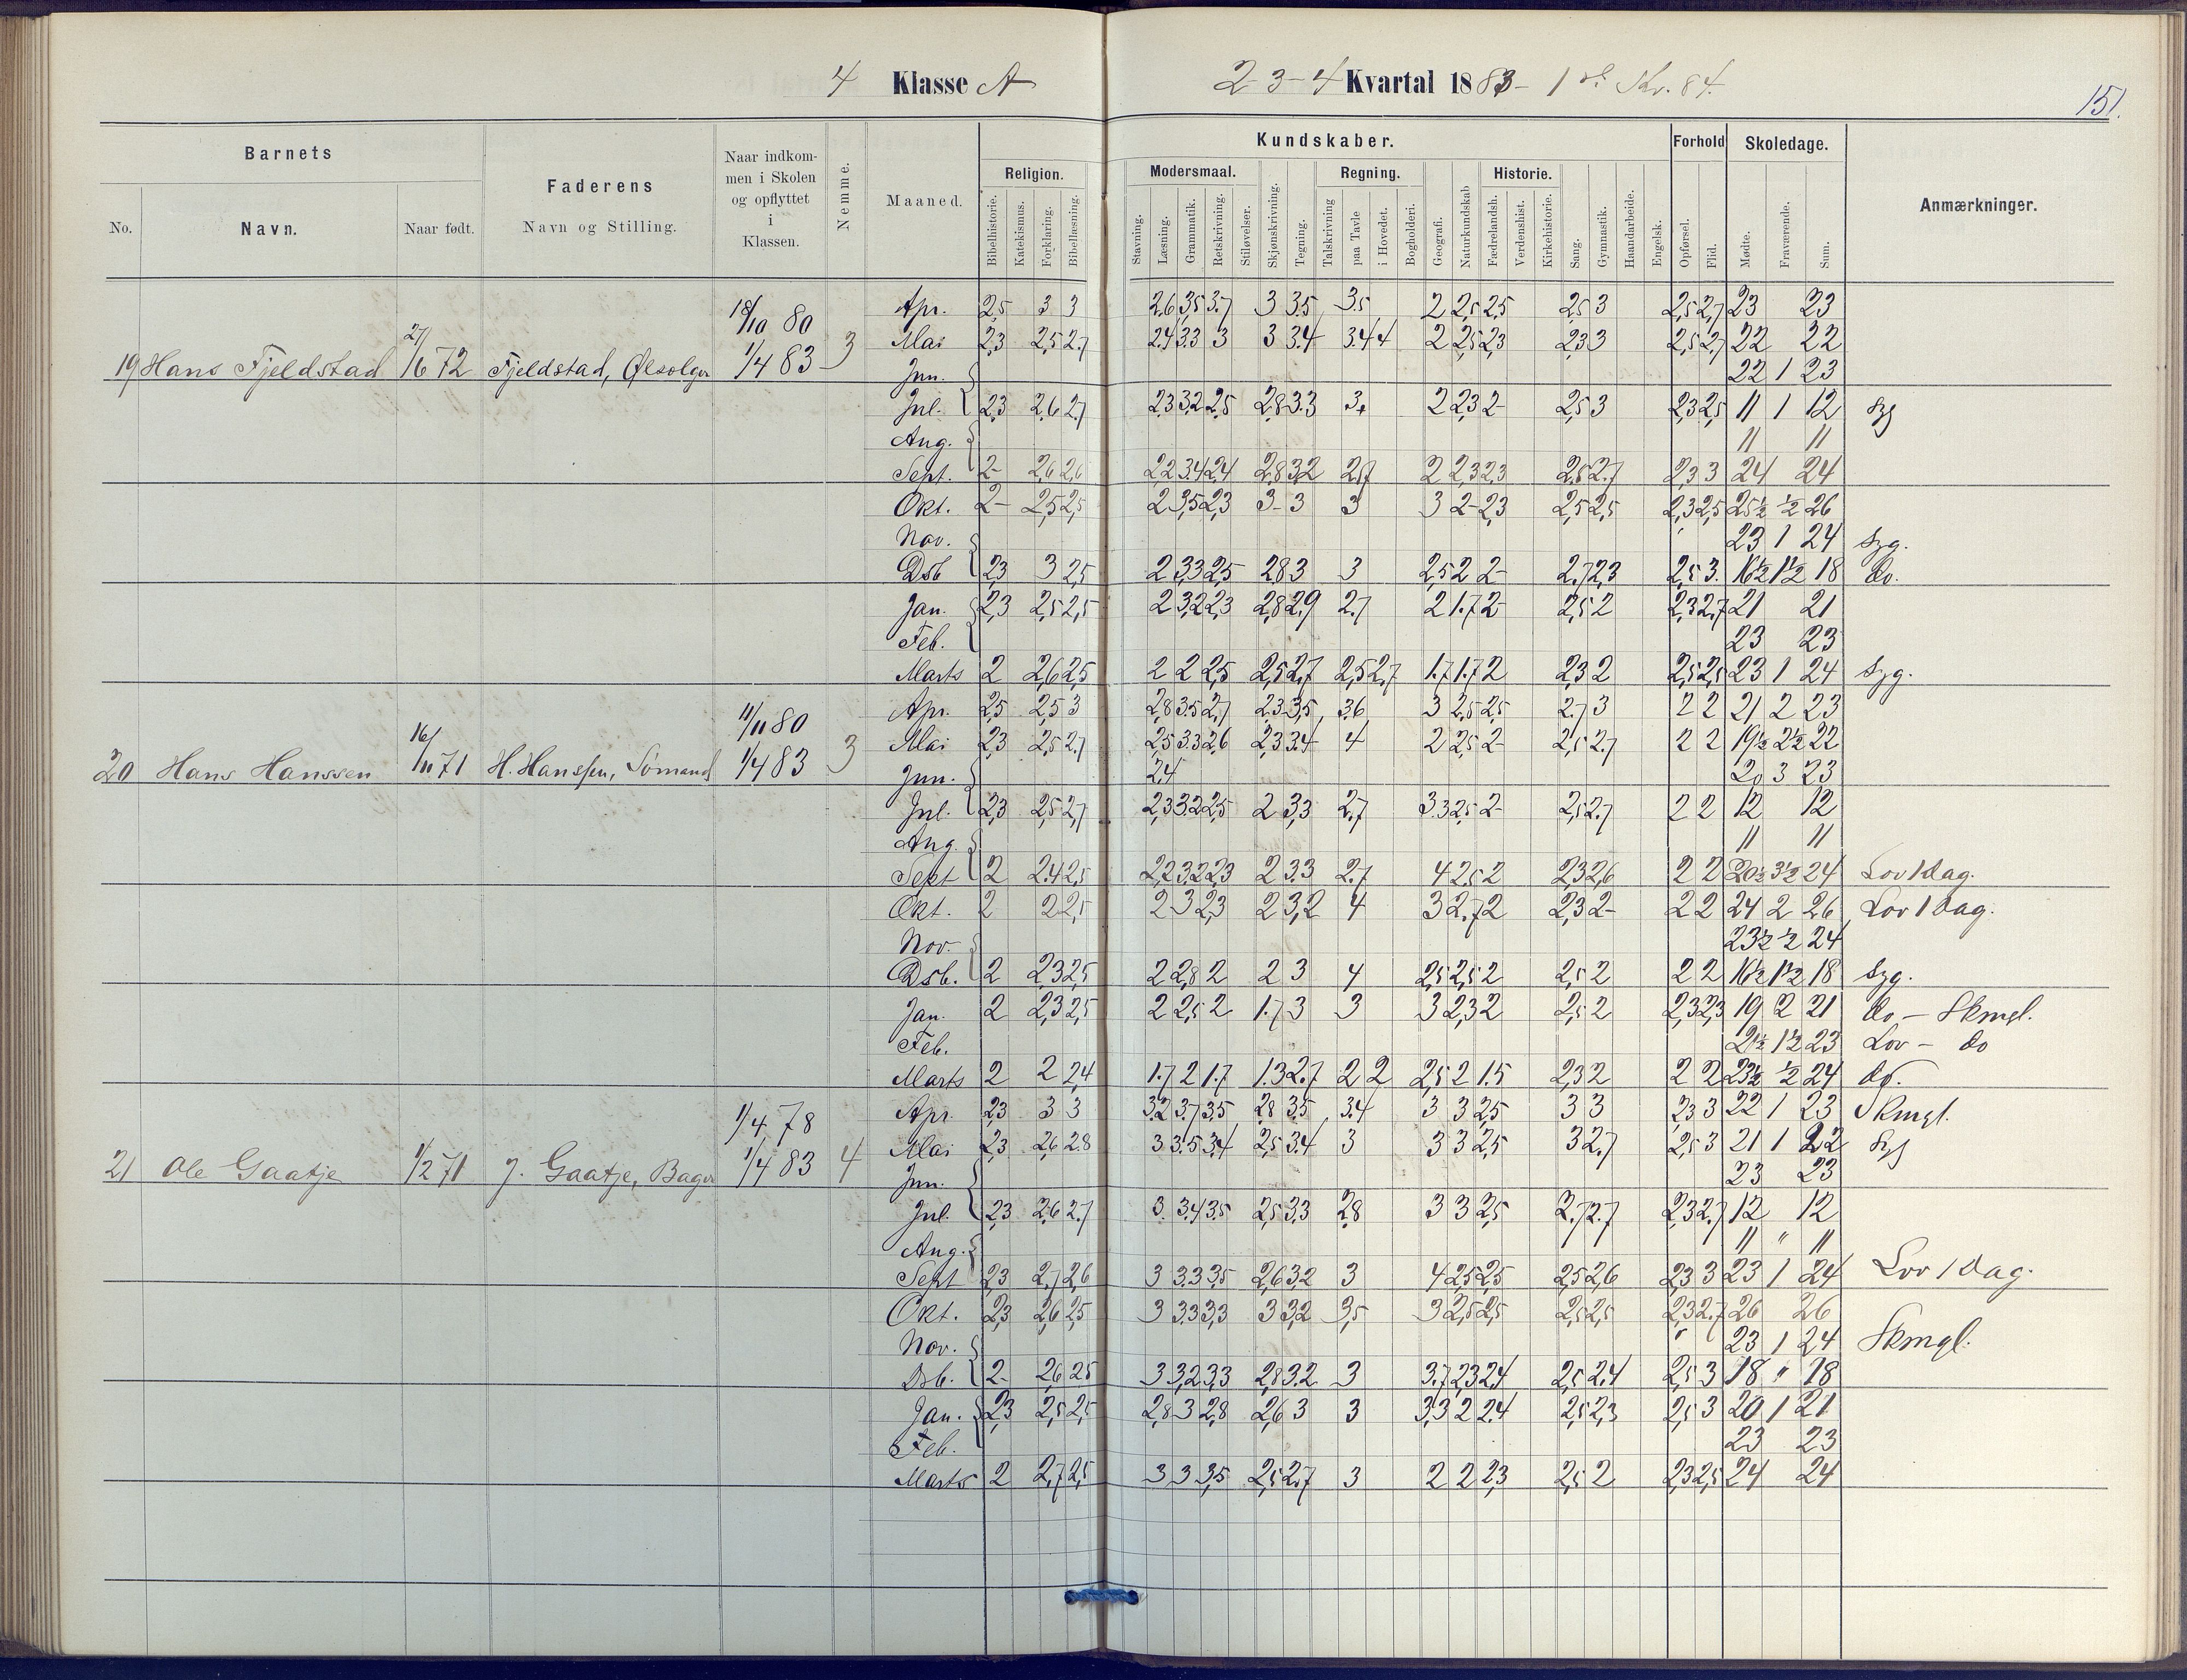 4 Klasse A
2-3-4 Kvartal 1883- 1 Kv. 84.
151.
Barnets
No.
Navn.
Naar født.
Faderens
Navn og Stilling.
Naar indkom-
men i Skolen
og opflyttet
i
Klassen.
Nemme.
Maaned.
Kundskaber.
Religion.
Bibelhistorie.
Katekismus.
Forklaring.
Bibellæsning.
Modersmaal.
Stavning.
Læsning.
Grammatik.
Retskrivning.
Stiløvelser.
Skjønskrivning.
Tegning.
Regning.
Talskrivning
paa Tavle
i Hovedet.
Bogholderi.
Geografi.
Naturkundskab
Historie.
Fædrelandsh.
Verdenshist.
Kirkehistorie.
Sang.
Gymnastik.
Haandarbeide.
Engelsk.
Forhold
Opførsel.
Flid.
Skoledage.
Mødte.
Fraværende.
Sum.
Anmærkninger.
19 Hans Fjeldstad 27/6 72 Fjeldstad, Ølsælger 18/10 80 1/4 83 3
Apr. 2,5 3 3 2,6 3,5 3,7 3 3,5 3,5 2 2,5 2,5 2,5 3 2,5 2,7 23 23
Mai 2,3 2,5 2,7 2,4 3,3 3 3 3,4 3,4 4 2 2,5 2,3 2,3 3 2,5 2,7 22 22
Jun. 22 1 23
Jul. 2,3 2,6 2,7 2,3 3,2 2,5 2,8 3,3 3 2 2,3 2 2,5 3 2,3 2,5 11 1 12 Syg
Aug. 11 11
Sept. 2 2,6 2,6 2,2 3,4 2,4 2,8 3,2 2,7 2 2,3 2,3 2,5 2,7 2,3 3 24 24
Okt. 2 2,5 2,5 2 3,5 2,3 3 3 3 3 2 2,3 2,5 2,5 2,3 2,5 25½ ½ 26
Nov. 23 1 24 Syg.
Dsb 2,3 3 2,5 2 3,3 2,5 2,8 3 3 2,5 2 2 2,7 2,3 2,5 3. 16½ 1½ 18 do.
Jan. 2,3 2,5 2,5 2 3,2 2,3 2,8 2,9 2,7 2 1,7 2 2,5 2 2,3 2,7 21 21
Feb. 23 23
Marts 2 2,6 2,5 2 2 2,5 2,5 2,7 2,5 2,7 1,7 1,7 2 2,3 2 2,5 2,5 23 1 24 Syg.
20 Hans Hanssen 16/11 71 H. Hanssen, Sömand 11/11 80 1/4 83 3
Apr. 2,5 2,5 3 2,8 3,5 2,7 2,3 3,5 3,6 3 2,5 2,5 2,7 3 2 2 21 2 23
Mai 2,3 2,5 2,7 2,5 3,3 2,6 2,3 3,4 4 2 2,5 2 2,5 2,7 2 2 19½ 2½ 22
Jun. 2,4 20 3 23
Jul. 2,3 2,5 2,7 2,3 3,2 2,5 2 3,3 2,7 3,3 2,5 2 2,5 2,7 2 2 12 12
Aug. 11 11
Sept 2 2,4 2,5 2,2 3,2 2,3 2 3,3 2,7 4 2,5 2 2,3 2,6 2 2 20½ 3½ 24 Lov 1 dag.
Okt. 2 2 2,5 2 3 2,3 2 3,2 4 3 2,7 2 2,3 2 2 2 24 2 26 Lov 1 dag.
Nov. 23½ ½ 24
Dsb. 2 2,3 2,5 2 2,8 2 2 3 4 2,5 2,5 2 2,5 2 2 2 16½ 1½ 18 Syg.
Jan. 2 2,3 2,5 2 2,5 2 1,7 3 3 3 2,3 2 2,5 2 2,3 2,3 19 2 21 do - Skmgl.
Feb. 21½ 1½ 23 Lov - do
Marts 2 2 2,4 1,7 2 1,7 1,3 2,7 2 2 2,5 2 1,5 2,3 2 2 2 23½ ½ 24 do.
21 Ole Gaatje 1/2 71 J. Gaatje, Bager 1/4 78 1/4 83 4
Apr. 2,3 3 3 3,2 3,7 3,5 2,8 3,5 3,4 3 3 2,5 3 3 2,3 3 22 1 23 Skmgl.
Mai 2,3 2,6 2,8 3 3,5 3,4 2,5 3,4 3 3 3 2,5 3 2,7 2,5 3 21 1 22 Syg
Jun. 23 23
Jul. 2,3 2,6 2,7 3. 3,4 3,5 2,5 3,3 2,8 3 3 2,5 2,7 2,7 2,3 2,7 12 12
Aug. 11 " 11
Sept 2,3 2,7 2,6 3 3,3 3,5 2,6 3,2 3 4 2,5 2,5 2,5 2,6 2,3 3 23 1 24 Lov 1 dag.
Okt. 2,3 2,6 2,5 3 3,3 3,3 3 3,2 3,5 3 2,5 2,5 2,5 2,5 2,3 2,7 26 26
Nov. 23 1 24 Skmgl.
Dsb. 2 2,6 2,5 3 3,2 3,3 2,8 3,2 3 3,7 2,3 2,4 2,5 2,4 2,5 3 18 " 18
Jan. 2,3 2,5 2,5 2,8 3 2,8 2,6 3 3 3,3 2 2,4 2,5 2,3 2,5 3 20 1 21
Feb. 23 23
Marts 2 2,7 2,5 3 3 3,5 2,5 2,7 3 2 2 2,3 2,5 2 2,3 2,5 24 24